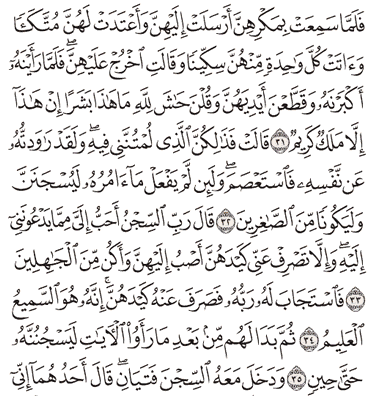 فَلَمَّا سَمِعَتْ بِمَكْرِهِنَّ أَرْسَلَتْ إِلَيْهِنَّ وَأَعْتَدَتْ لَهُنَّ مُتَّكَـًٔا
وَءَاتَتْ كُلَّ وَٰحِدَةٍ مِّنْهُنَّ سِكِّينًا وَقَالَتِ ٱخْرُجْ عَلَيْهِنَّ ۖ فَلَمَّا رَأَيْنَهُۥٓ
أَكْبَرْنَهُۥ وَقَطَّعْنَ أَيْدِيَهُنَّ وَقُلْنَ حَٰشَ لِلَّهِ مَا هَٰذَا بَشَرًا إِنْ هَٰذَآ
إِلَّا مَلَكٌ كَرِيمٌ ٣١ قَالَتْ فَذَٰلِكُنَّ ٱلَّذِى لُمْتُنَّنِى فِيهِ ۖ وَلَقَدْ رَٰوَدتُّهُۥ
عَن نَّفْسِهِۦ فَٱسْتَعْصَمَ ۖ وَلَئِن لَّمْ يَفْعَلْ مَآ ءَامُرُهُۥ لَيُسْجَنَنَّ
وَلَيَكُونًا مِّنَ ٱلصَّٰغِرِينَ ٣٢ قَالَ رَبِّ ٱلسِّجْنُ أَحَبُّ إِلَىَّ مِمَّا يَدْعُونَنِىٓ
إِلَيْهِ ۖ وَإِلَّا تَصْرِفْ عَنِّى كَيْدَهُنَّ أَصْبُ إِلَيْهِنَّ وَأَكُن مِّنَ ٱلْجَٰهِلِينَ
٣٣ فَٱسْتَجَابَ لَهُۥ رَبُّهُۥ فَصَرَفَ عَنْهُ كَيْدَهُنَّ ۚ إِنَّهُۥ هُوَ ٱلسَّمِيعُ
ٱلْعَلِيمُ ٣٤ ثُمَّ بَدَا لَهُم مِّنۢ بَعْدِ مَا رَأَوُا۟ ٱلْـَٔايَٰتِ لَيَسْجُنُنَّهُۥ
حَتَّىٰ حِينٍ ٣٥ وَدَخَلَ مَعَهُ ٱلسِّجْنَ فَتَيَانِ ۖ قَالَ أَحَدُهُمَآ إِنِّىٓ